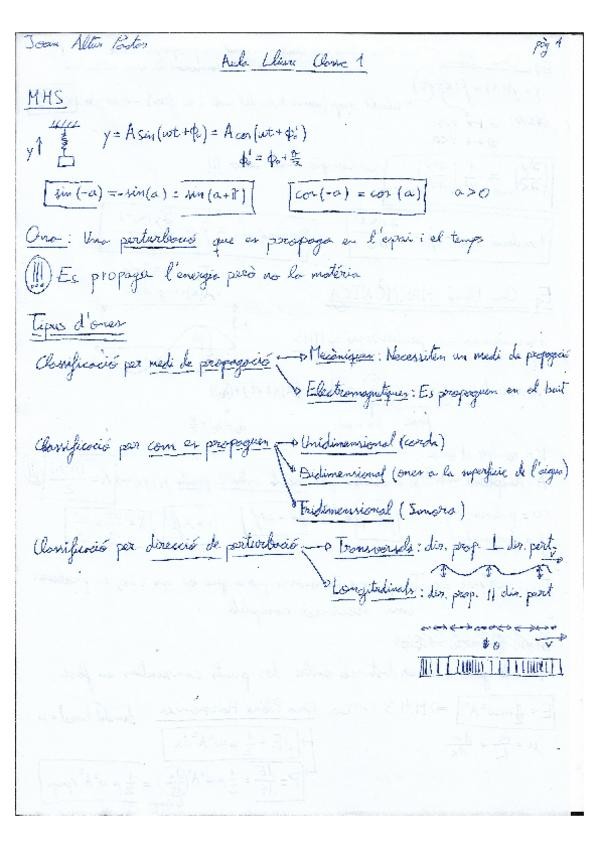 Joan Altur Pastor
pàg 1
Aula Lliure Classe 1
MHS
y↑
y = A sin(ωt+ϕ₀) = A cos(ωt+ϕ₀')
ϕ₀' = ϕ₀ + π/2
sin(-a) = -sin(a) = sin(a+π)   cos(-a) = cos(a)   a>0
Ona: Una perturbació que es propaga en l'espai i el temps
!!! Es propaga l'energia però no la matèria
Tipus d'ones
Classificació per medi de propagació → Mecàniques: Necessitén un medi de propagació
→ Electromagnètiques: Es propaguen en el buit
Classificació per com es propaguen → Unidimensional (corda)
→ Bidimensional (ones a la superfície de l'aigua)
→ Tridimensional (Sonora)
Classificació per direcció de perturbació → Transversals: dir. prop ⊥ dir. pert
→ Longitudinals: dir. prop. || dir. pert
v